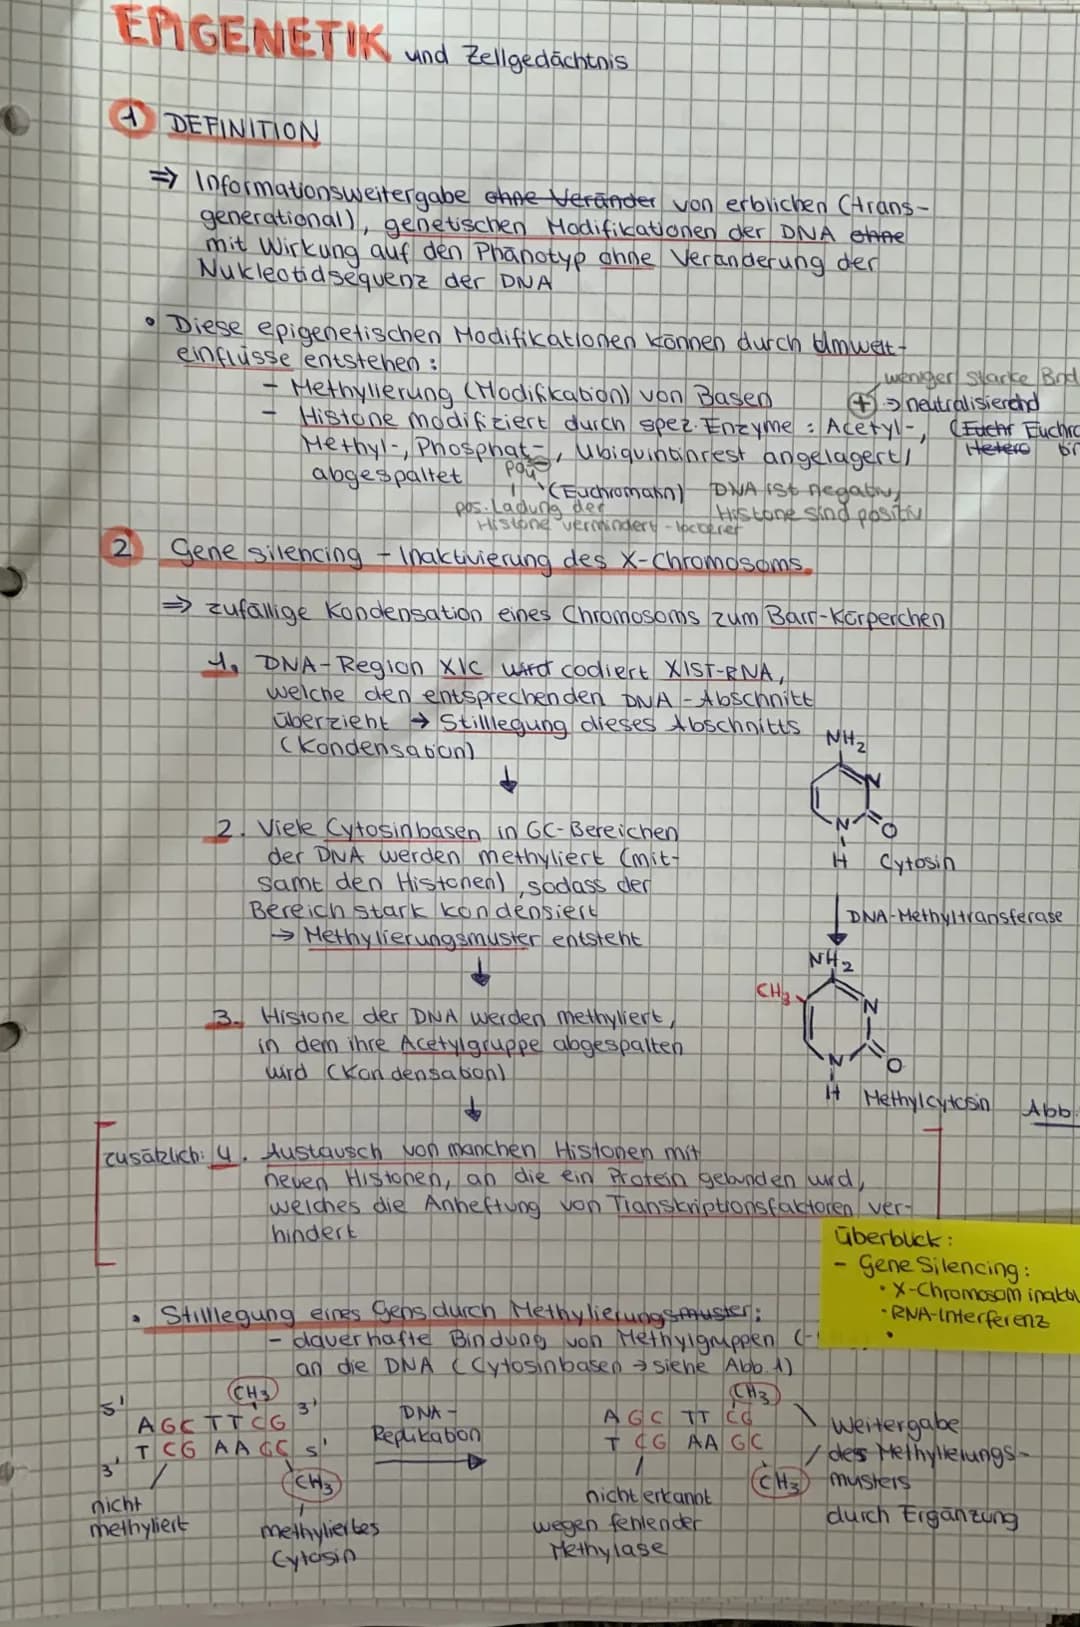 EPIGENETIK und Zellgedächtnis
1 DEFINITION
⇒ Informationsweitergabe ohne Veränder von erblichen (trans-
generational), genetischen Modifikationen der DNA ohne
mit Wirkung auf den Phänotyp ohne Veränderung der
Nukleotidsequenz der DNA
• Diese epigenetischen Modifikationen können durch Umwelt-
einflüsse entstehen:
weniger starke Bnd
- Methylierung (Modifikation) von Basen
+ → neutralisierend
- Histone modifiziert durch spez. Enzyme: Acetyl-,
(Euchr Euchro
Methyl-, Phosphat-, Ubiquintinrest angelagert/
Hetero
abgespaltet
(Euchromatin)
DNA ist negativ,
pos. Ladung der
Histone sind positiv
Histone vermindert - lockerer
2 Gene silencing - Inaktivierung des X-Chromosoms
⇒ zufällige Kondensation eines Chromosoms zum Barr-Körperchen
1. DNA-Region XIC wird codiert XIST-RNA,
welche den entsprechenden DNA-Abschnitt
überzieht → Stilllegung dieses Abschnitts
(Kondensation)
NH2
N
N
O
H Cytosin
2. Viele Cytosinbasen in GC-Bereichen
der DNA werden methyliert (mit-
samt den Histonen), sodass der
Bereich stark kondensiert
→ Methylierungsmuster entsteht
DNA-Methyltransferase
NH2
CH3
N
N
O
H Methylcytosin Abb.
3. Histone der DNA werden methyliert,
in dem ihre Acetylgruppe abgespalten
wird (Kondensation)
zusätzlich: 4. Austausch von manchen Histonen mit
neuen Histonen, an die ein Protein gebunden wird,
welches die Anheftung von Transkriptionsfaktoren ver-
hindert
überblick:
- Gene Silencing:
• X-Chromosom inaktiv
• RNA-Interferenz
•
• Stilllegung eines Gens durch Methylierungsmuster:
- dauerhafte Bindung von Methylgruppen (-
an die DNA (Cytosinbasen → siehe Abb. 1)
CH3
5' AGC TT CG 3'
3' T CG AA GC 5'
CH3
nicht
methyliert
methyliertes
Cytosin
DNA-
Replikation
CH3
AGC TT CG
T CG AA GC
CH3
nicht erkannt
wegen fehlender
Methylase
Weitergabe
des Methylierungs-
musters
durch Ergänzung